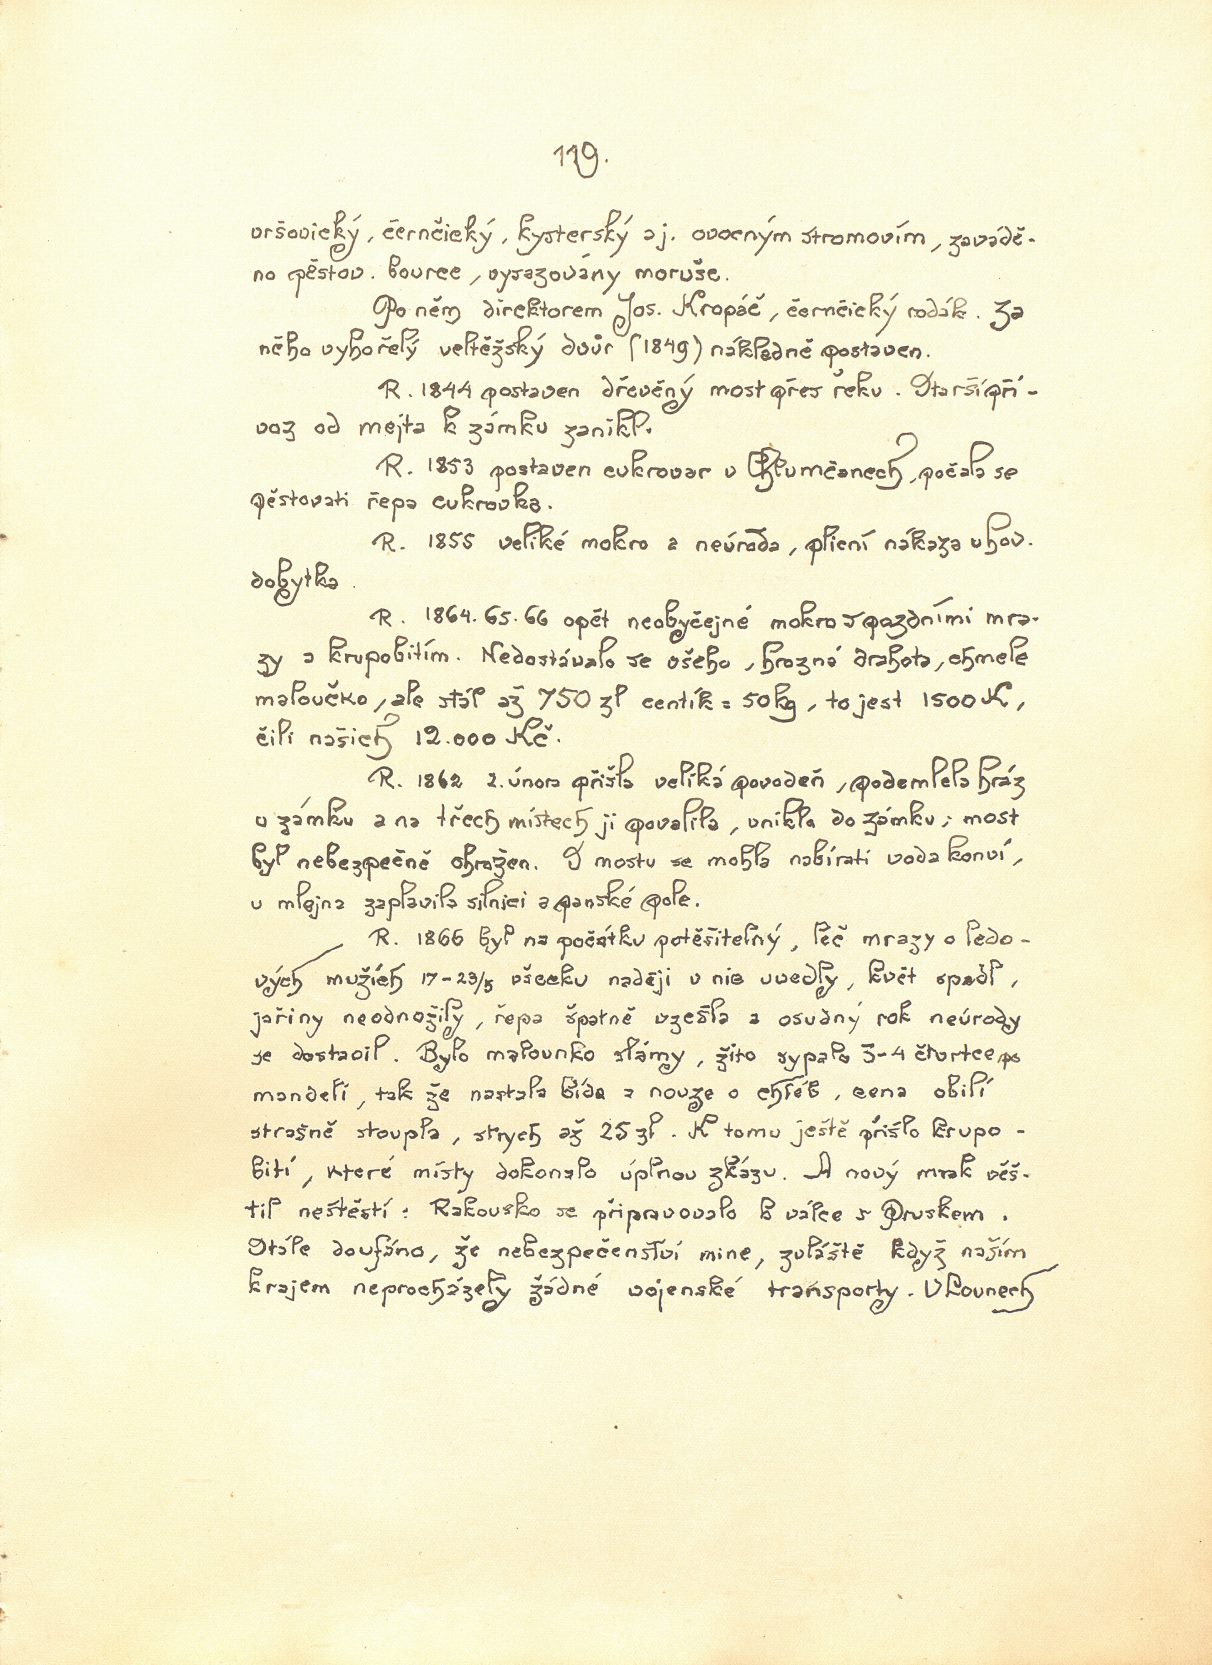 119.
vršovický, černčický, kysterský a j. ovocným stromovím, zavádě-
no pěstov. bource, vysazovány moruše.
Po něm direktorem Jos. Kropáč, černčický rodák. Za
něho vyhořelý veltěžský dvůr (1849) nákladně postaven.
R. 1844 postaven dřevěný most přes řeku. Starší pří-
voz od mejta k zámku zanikl.
R. 1853 postaven cukrovar v Chlumčanech, počala se
pěstovati řepa cukrovka.
R. 1855 veliké mokro a neúroda, plicní nákaza u hov.
dobytka.
R. 1864. 65. 66 opět neobyčejné mokro s pozdními mra-
zy a krupobitím. Nedostávalo se všeho, hrozná drahota, chmele
maloučko, ale stál až 750 zl centík = 50 kg, to jest 1500 K,
čili našich 12.000 Kč.
R. 1862 2. února přišla veliká povodeň, podemlela hráz
u zámku a na třech místech ji povalila, vnikla do zámku; most
byl nebezpečně ohrožen. S mostu se mohla nabírati voda konví,
u mlejna zaplavila silnici a panské pole.
R. 1866 byl na počátku potěšitelný, leč mrazy o ledo-
vých mužích 17-23/5 všecku naději v nic uvedly, květ spadl,
jařiny neodnožily, řepa špatně vzešla a osudný rok neúrody
se dostavil. Bylo malounko slámy, žito sypalo 3-4 čtvrtce po
mandeli, tak že nastala bída a nouze o chléb, cena obilí
strašně stoupla, strych až 25 zl. K tomu ještě přišlo krupo-
bití, které místy dokonalo úplnou zkázu. A nový mrak věš-
til neštěstí: Rakousko se připravovalo k válce s Pruskem.
Stále doufáno, že nebezpečenství mine, zvláště když naším
krajem neprocházely žádné vojenské transporty. V Lounech